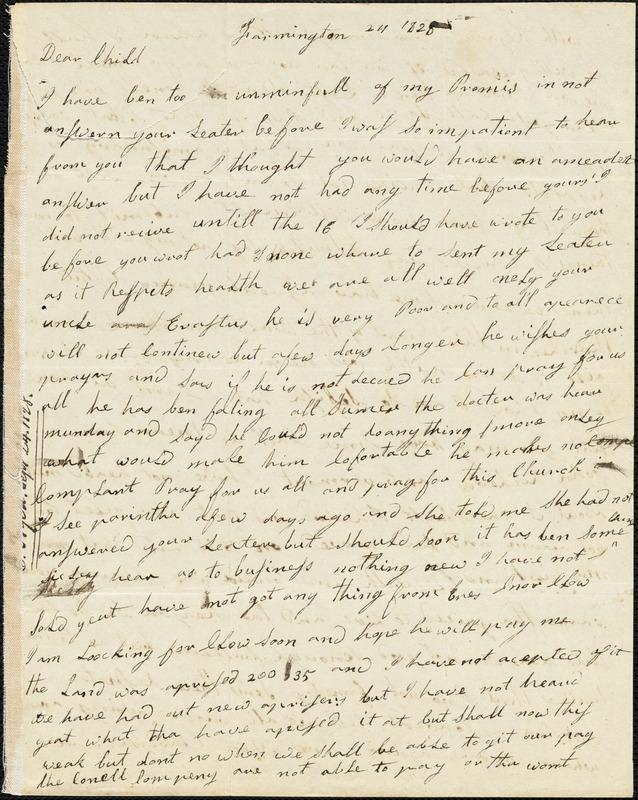 Farmington 24 1828
Dear Child
I have ben too unminfull of my Promis in not
answern your Leater before I was so impatient to hear
from you that I thought you would have an ameadet
answer but I have not had any time before yours I
did not recive untill the 16 I should have wrote to you
before you wrot had I none whare to sent my Leater
as it Respets health wee are all well onely your
uncle Erastus he is very Poor and to all apearece
will not Continew but afew days Longer he wishes your
prayrs and Says if he is not decived he Can pray for us
all he has ben faling all Sumer the docter was hear
munday and Sayd he Could not do anything more onley
what would make him Cofortable he makes no
Complant Pray for us all and pray for this Church
I See parintha afew days ago and she told me She had not
answered your Leater but Should Soon it has ben Some
hear as to business nothing new I have not
Sold yeat have not got any thing from nor Clow
I am Loocking for Clow Soon and hope he will pay me
the Land was aprised 200 35 and I have not acepted of it
we have had out new aprisers but I have not heard
yeat what tha have aprised it at but Shall now this
weak but dont no when we Shall be able to git our pay
the Conell Compeny are not able to pay or tha wont